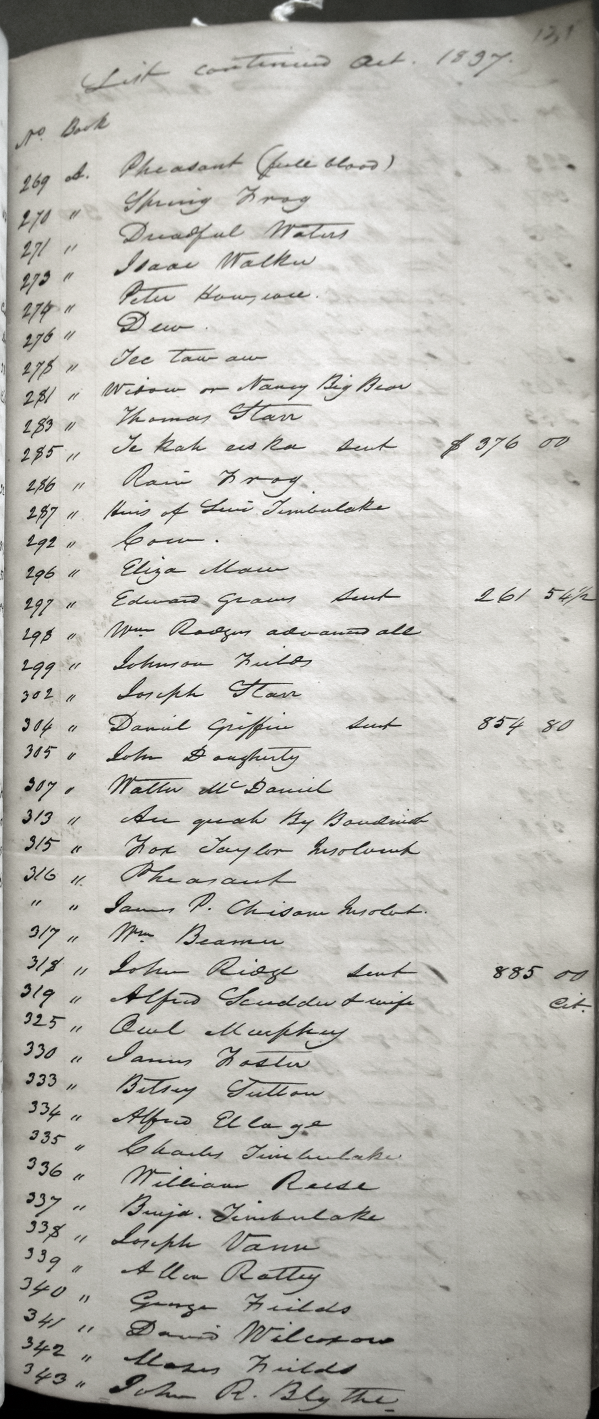 List continued Oct. 1837.
No. Book
269 A. Pheasant (full blood)
270 " Spring Frog
271 " Dreadful Waters
273 " Isaac Walker
274 " Peter
276 " Dew.
278 " Tec taw aw
281 " Widow or Nancy Big Bear
283 " Thomas Starr
285 " Te kah eeska sent $ 376 00
286 " Rain Frog
287 " Heirs of Levi Timberlake
292 " Corn.
296 " Eliza Maw
297 " Edward Graves sent 261 54½
298 " Wm Rodgers advanced all
299 " Johnson Fields
302 " Joseph Starr
304 " Daniel Griffin sent 854 80
305 " John Dougherty
307 " Walter McDaniel
313 " quah By Boudinot
315 " Fox Taylor Insolvent
316 " Pheasant
" " James P. Chisom Insolvt.
317 " Wm Beamer
318 " John Ridge sent 885 00
319 " Alfred Scudder & wife Cit.
325 " Owl Murphey
330 " James Foster
333 " Betsey Sutton
334 " Alfred Ellage
335 " Charles Timberlake
336 " William Reese
337 " Benja. Timberlake
338 " Joseph Vann
339 " Allen Ratley
340 " George Fields
341 " David Wilcoxon
342 " Moses Fields
343 " John R. Blythe